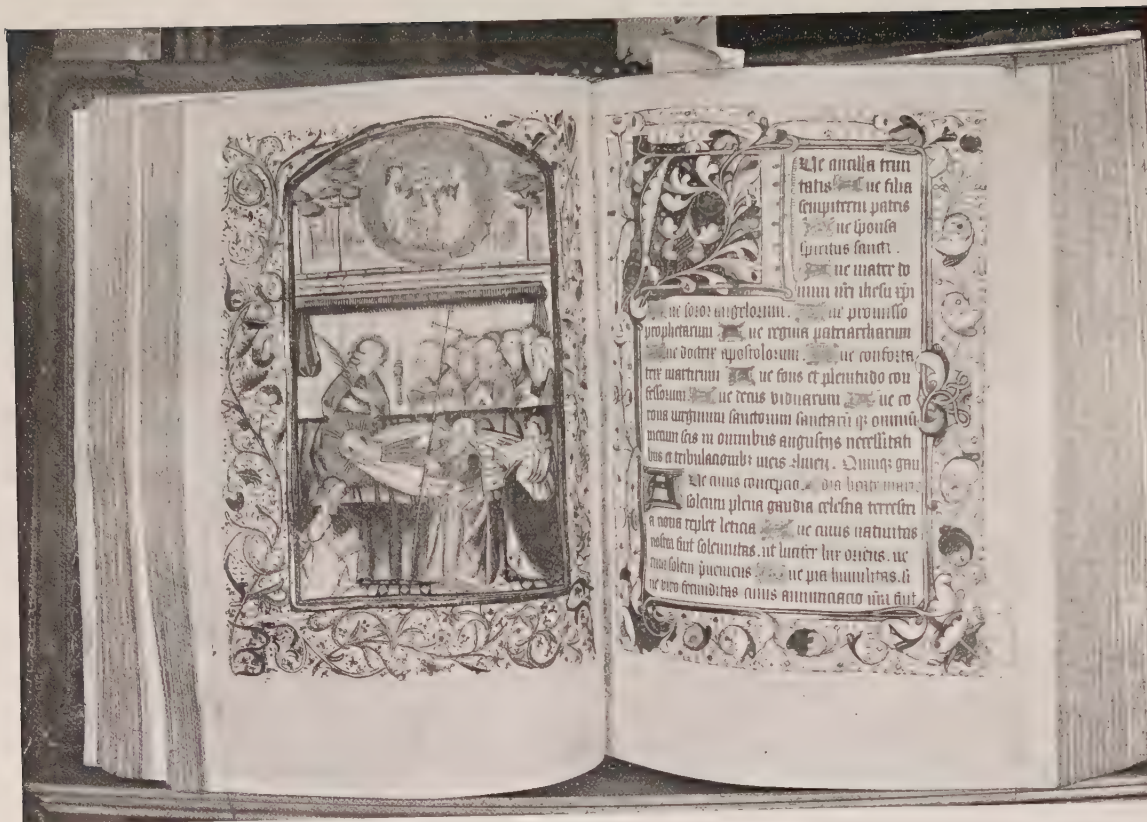 Ue ancilla trini
tatis ue filia
sempiterni patris
ue sponsa
spiritus sancti .
ue mater do
mini nr̄i ihesu xp̄i
ue soror angelorum . ue promisso
prophetarum A ue regina patriarcharum
ue doctrix apostolorum . ue conforta
trix martirum A ue fons et plenitudo con
fessorum ue decus viduarum ue co
rona virginum sanctorum sanctarū qȝ omniū
mecum sis in omnibus angustijs necessitati
bus et tribulacionibȝ meis Amen . Quinqȝ gau
A Ue cuius concepcio
solenni plena gaudia celestia terrestri
a noua replet leticia ue cuius natiuitas
nostra fuit solennitas . ut lucifer lux oriens . ue
rum solem p̄ueniens ue pia humilitas . si
ne viro fecunditas cuius annunciacio nr̄a fuit